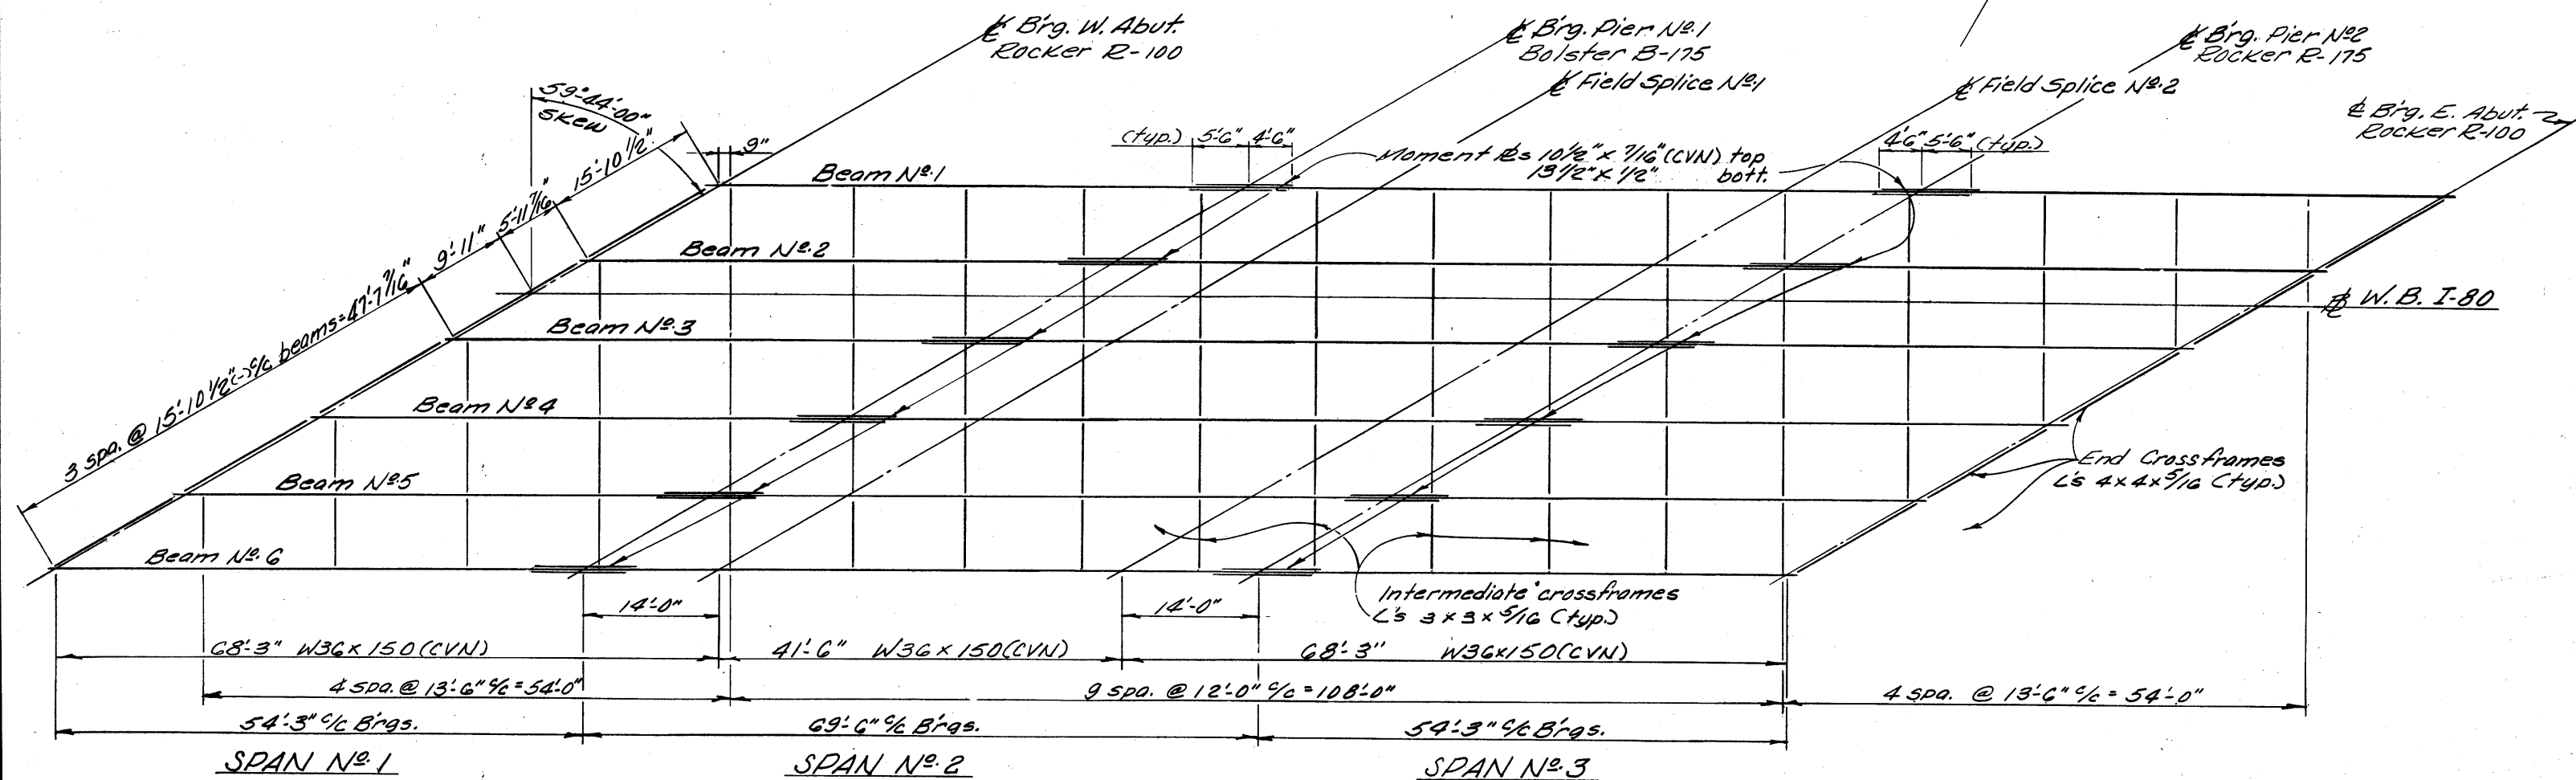 ℄ B'rg. W. Abut.
Rocker R-100
℄ B'rg. Pier Nº.1
Bolster B-175
℄ Field Splice Nº.1
℄ B'rg. Pier Nº2
Rocker R-175
℄ Field Splice Nº.2
℄ B'rg. E. Abut.
Rocker R-100
59°-44'-00"
Skew
15'-10 1/2"
9"
5'-11 7/16"
9'-11"
3 spa. @ 15'-10 1/2"(-) c/c beams = 47'-7 7/16"
(typ.) 5'-6" 4'-6"
4'-6" 5'-6" (typ.)
Moment ℞s 10 1/2" x 7/16" (CVN) top
13 1/2" x 1/2" bott.
Beam Nº.1
Beam Nº.2
Beam Nº.3
Beam Nº4
Beam Nº5
Beam Nº.6
W.B. I-80
End Crossframes
L's 4x4x5/16 (typ.)
Intermediate crossframes
L's 3x3x5/16 (typ.)
14'-0"
14'-0"
68'-3" W36x150(CVN)
41'-6" W36x150(CVN)
68'-3" W36x150(CVN)
4 spa. @ 13'-6" c/c = 54'-0"
9 spa. @ 12'-0" c/c = 108'-0"
4 spa. @ 13'-6" c/c = 54'-0"
54'-3" c/c B'rgs.
69'-6" c/c B'rgs.
54'-3" c/c B'rgs.
SPAN Nº.1
SPAN Nº.2
SPAN Nº.3